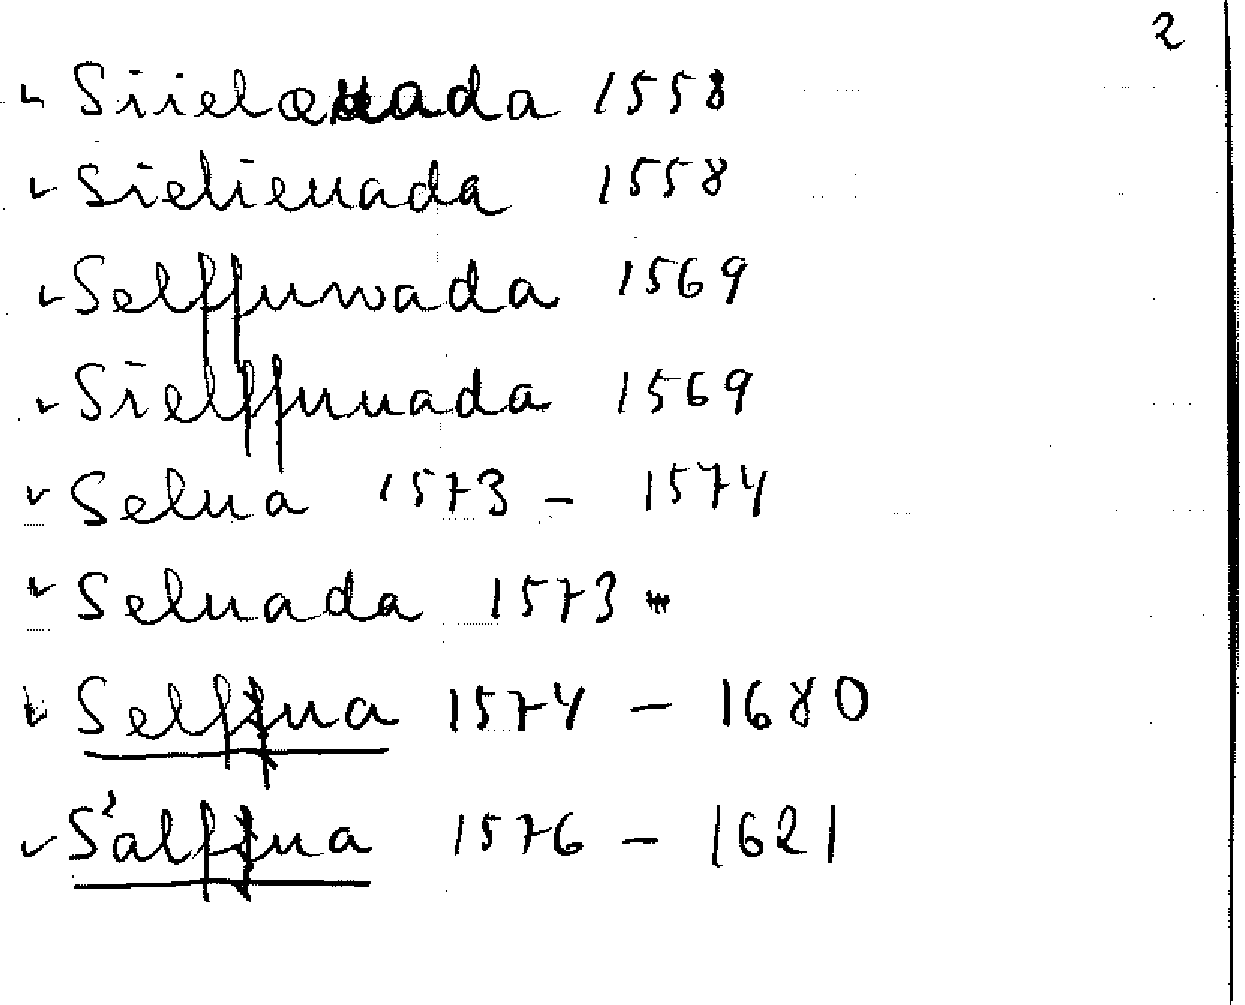 2
Siielenada 1558
Sielienada 1558
Selffunada 1569
Sielffunada 1569
Selna 1573 - 1574
Selnada 1573
Selffna 1574 - 1680
S'alffna 1576 - 1621